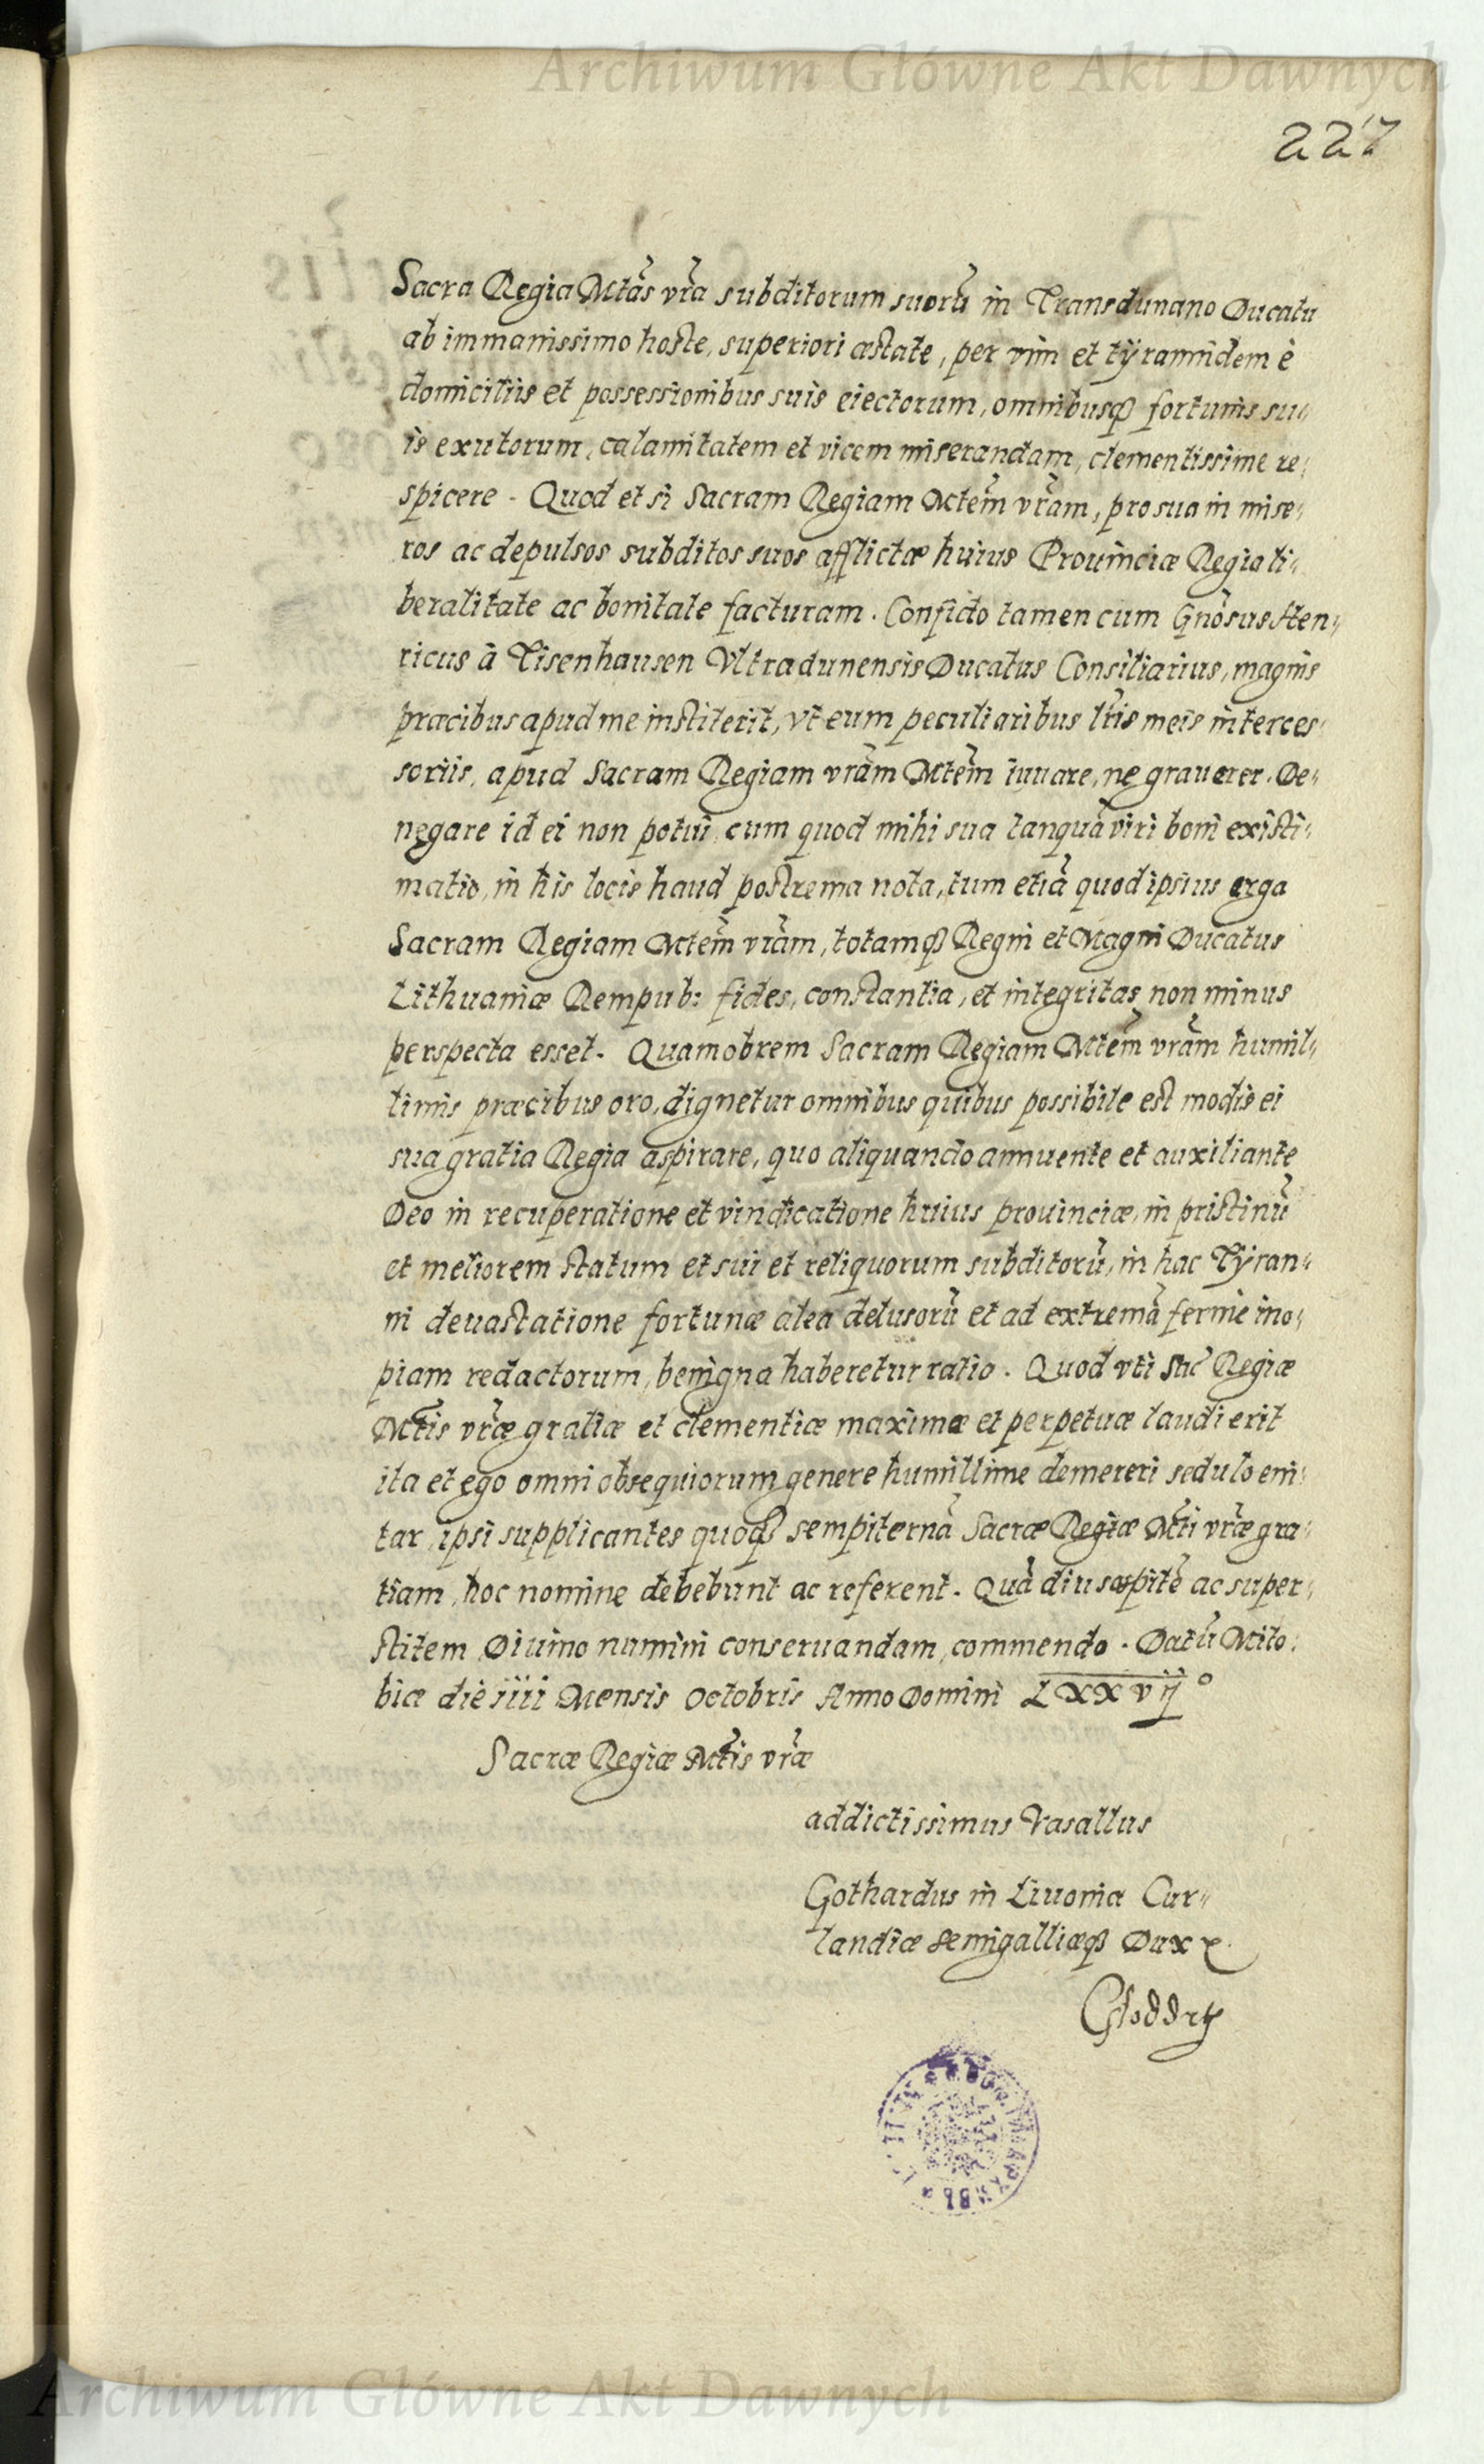 Archiwum Główne Akt Dawnych
227
Sacra Regia Mtas vra subditorum suorũ in Transdunano Ducatu
ab immanissimo hoste, superiori æstate, per vim et tÿrannidem è
domicilijs et possessionibus suis eiectorum, omnibusq; fortunis su„
is exutorum, calamitatem et vicem miserandam, clementissime re„
spicere. Quod et si Sacram Regiam Mtem vram, pro sua in mise„
ros ac depulsos subditos suos afflictæ huius Prouinciæ Regia li„
beralitate ac bonitate facturam. Confido tamen cum Gnosus Hen„
ricus à Tisenhausen Vltradunensis Ducatus Consiliarius, magnis
præcibus apud me institerit, vt eum peculiaribus lris meis interces„
sorijs, apud Sacram Regiam vram Mtem iuuare, ne grauerer. De„
negare id ei non potui, cum quod mihi sua tanquã viri boni existi„
matio, in his locis haud postrema nota, tum etiã quod ipsius erga
Sacram Regiam Mtem vram, totamq; Regni et Magni Ducatus
Lithuaniæ Rempub: fides, constantia, et integritas non minus
perspecta esset. Quamobrem Sacram Regiam Mtem vram humil„
limis præcibus oro, dignetur omnibus quibus possibile est modis ei
sua gratia Regia aspirare, quo aliquando annuente et auxiliante
Deo in recuperatione et vindicatione huius prouinciæ, in pristinũ
et meliorem statum et sui et reliquorum subditorũ, in hac Tÿran„
ni deuastatione fortunæ alea delusorũ et ad extremã ferme ino„
piam redactorum, benigna haberetur ratio. Quod vti Sac Regiæ
Mtis vræ gratiæ et clementiæ maximæ et perpetuæ laudi erit
ita et ego omni obsequiorum genere humillime demereri sedulo eni„
tar, ipsi supplicantes quoq; sempiternã Sacræ Regiæ Mti vræ gra„
tiam, hoc nomine debebunt ac referent. Quã diu sospitẽ ac super„
stitem Diuino numini conseruandam, commendo. Datũ Mito„
biæ die iiii Mensis Octobris Anno Domini LXXvij°
Sacræ Regiæ Mtis vræ
addictissimus Vasallus
Gothardus in Liuonia Cur„
landiæ Semigalliæq; Dux
Archiwum Główne Akt Dawnych